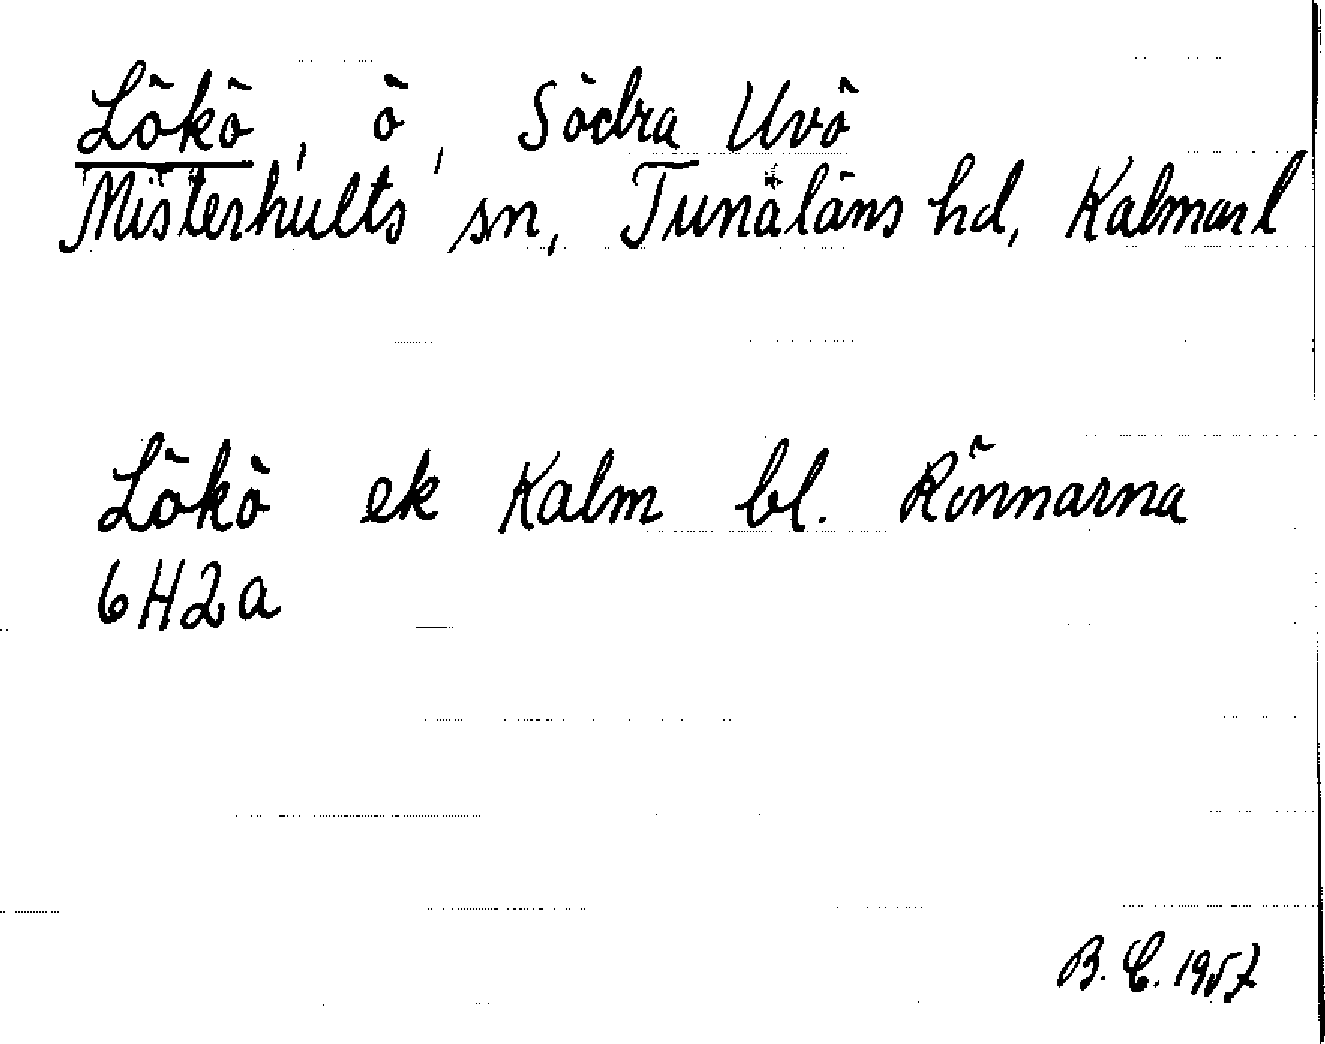 Lökö, ö, Södra Uvö
Misterhults sn, Tunaläns hd, Kalmarl
Lökö ek Kalm bl. Rönnarna
6H2a
B. E. 1957